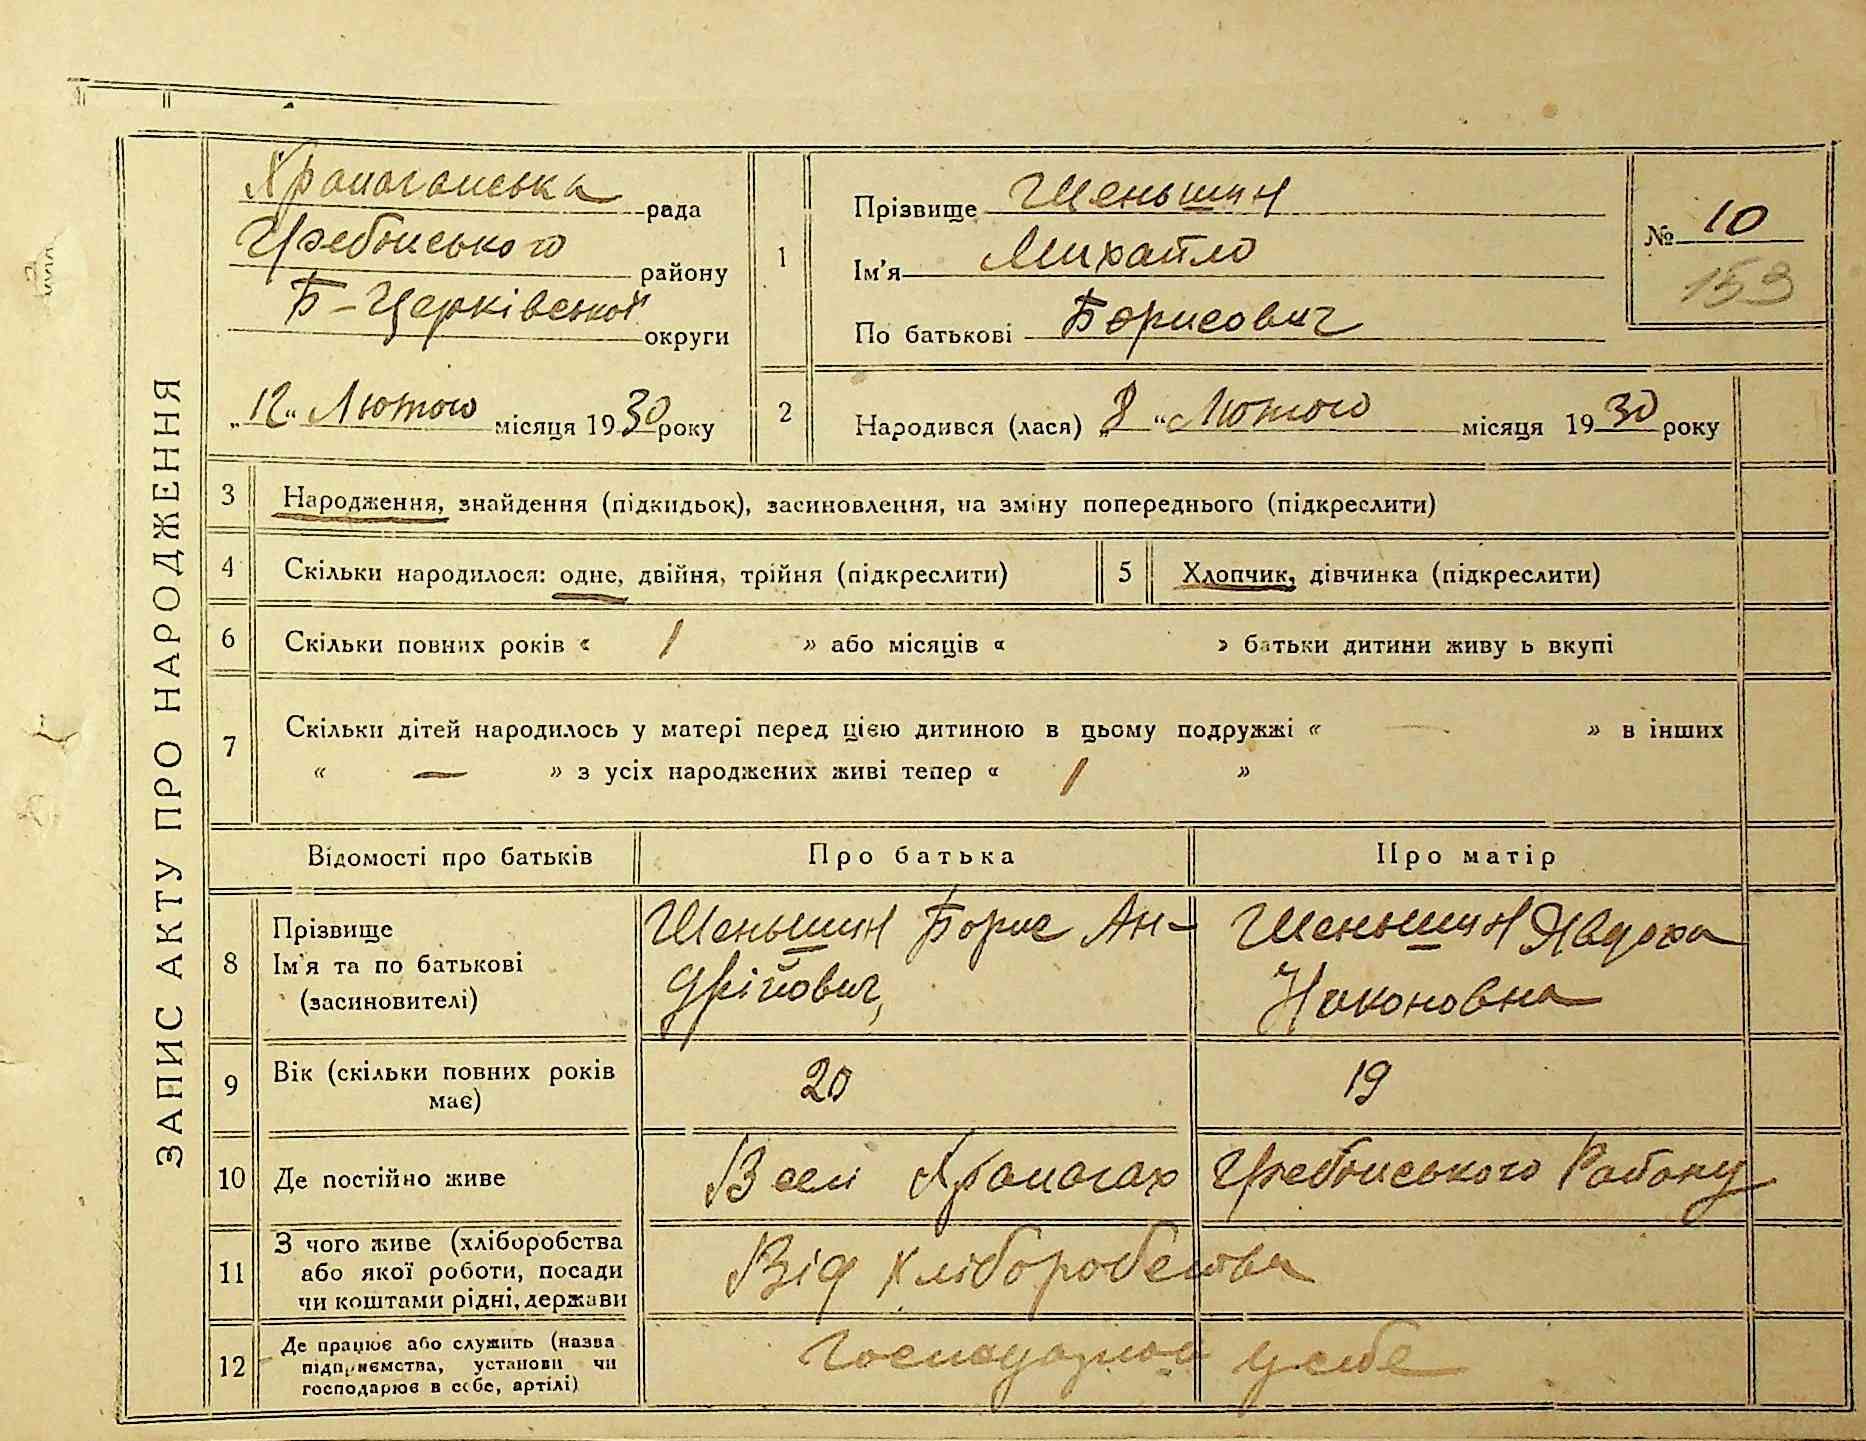 ЗАПИС АКТУ ПРО НАРОДЖЕННЯ
Храпачанська рада
Гребінського району
Б-Церківської округи
„12“ Лютого місяця 1930 року
1
Прізвище Шеньшин
Ім'я Михайло
По батькові Борисович
№ 10
153
2
Народився (лася) „8“ Лютого місяця 1930 року
3 Народження, знайдення (підкидьок), засиновлення, на зміну попереднього (підкреслити)
4 Скільки народилося: одне, двійня, трійня (підкреслити) 5 Хлопчик, дівчинка (підкреслити)
6 Скільки повних років « 1 » або місяців « » батьки дитини живу ь вкупі
7 Скільки дітей народилось у матері перед цією дитиною в цьому подружжі « — » в інших
« — » з усіх народжених живі тепер « 1 »
Відомості про батьків Про батька Про матір
8 Прізвище
Ім'я та по батькові
(засиновителі)
Шеньшин Борис Ан-
дрійович,
Шеньшин Явдоха
Никоновна
9 Вік (скільки повних років
має)
20 19
10 Де постійно живе В селі Храпачах Гребінського Району
11 З чого живе (хліборобства
або якої роботи, посади
чи коштами рідні, держави
Від хліборобства
12 Де працює або служить (назва
підприємства, установи чи
господарює в себе, артілі)
у себе